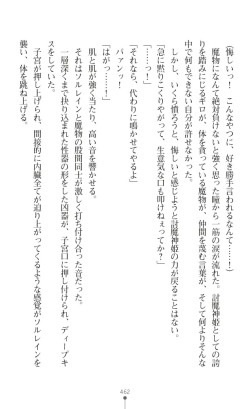 (悔しいっ！　こんなやつに、好き勝手言われるなんて……！)
魔物になんて絶対負けないと強く思った瞳から一筋の涙が流れた。討魔神姫としての誇
りを踏みにじるギロが、体を貪っている魔物が、仲間を蔑む言葉が、そして何よりそんな
中で何もできない自分が許せなかった。
しかし、いくら憤ろうと、悔しいと感じようと討魔神姫の力が戻ることはない。
「急に黙りこくりやがって、生意気な口も叩けねぇってか？」
「……っ！」
「それなら、代わりに鳴かせてやるよ」
パァンッ！
「はがっ……！」
肌と肌が強く当たり、高い音を響かせる。
それはソルレインと魔物の股間同士が激しく打ち付け合った音だった。
一層深くまで抉り込まれた性器の形をした凶器が、子宮口に押し付けられ、ディープキ
スをしていた。
子宮が押し上げられ、間接的に内臓全てが迫り上がってくるような感覚がソルレインを
襲い、体を跳ね上げる。
462